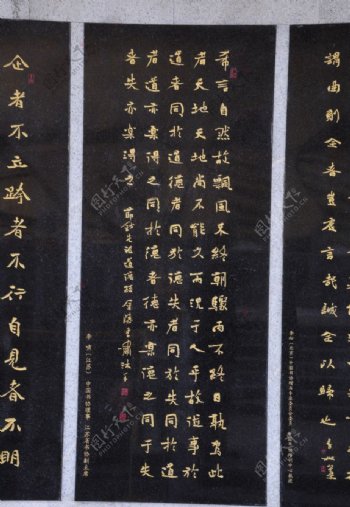 謂曲則全者豈虛言哉誠全以歸之
希言自然故飄風不終朝驟雨不終日孰為此
者天地天地尚不能久而況于人乎故從事於
道者同於道德者同於德失者同於失同於道
者道亦樂得之同於德者德亦樂得之同于失
者失亦樂得之
李啸（江苏） 中国书协理事 江苏省书协副主席
企者不立跨者不行自見者不明